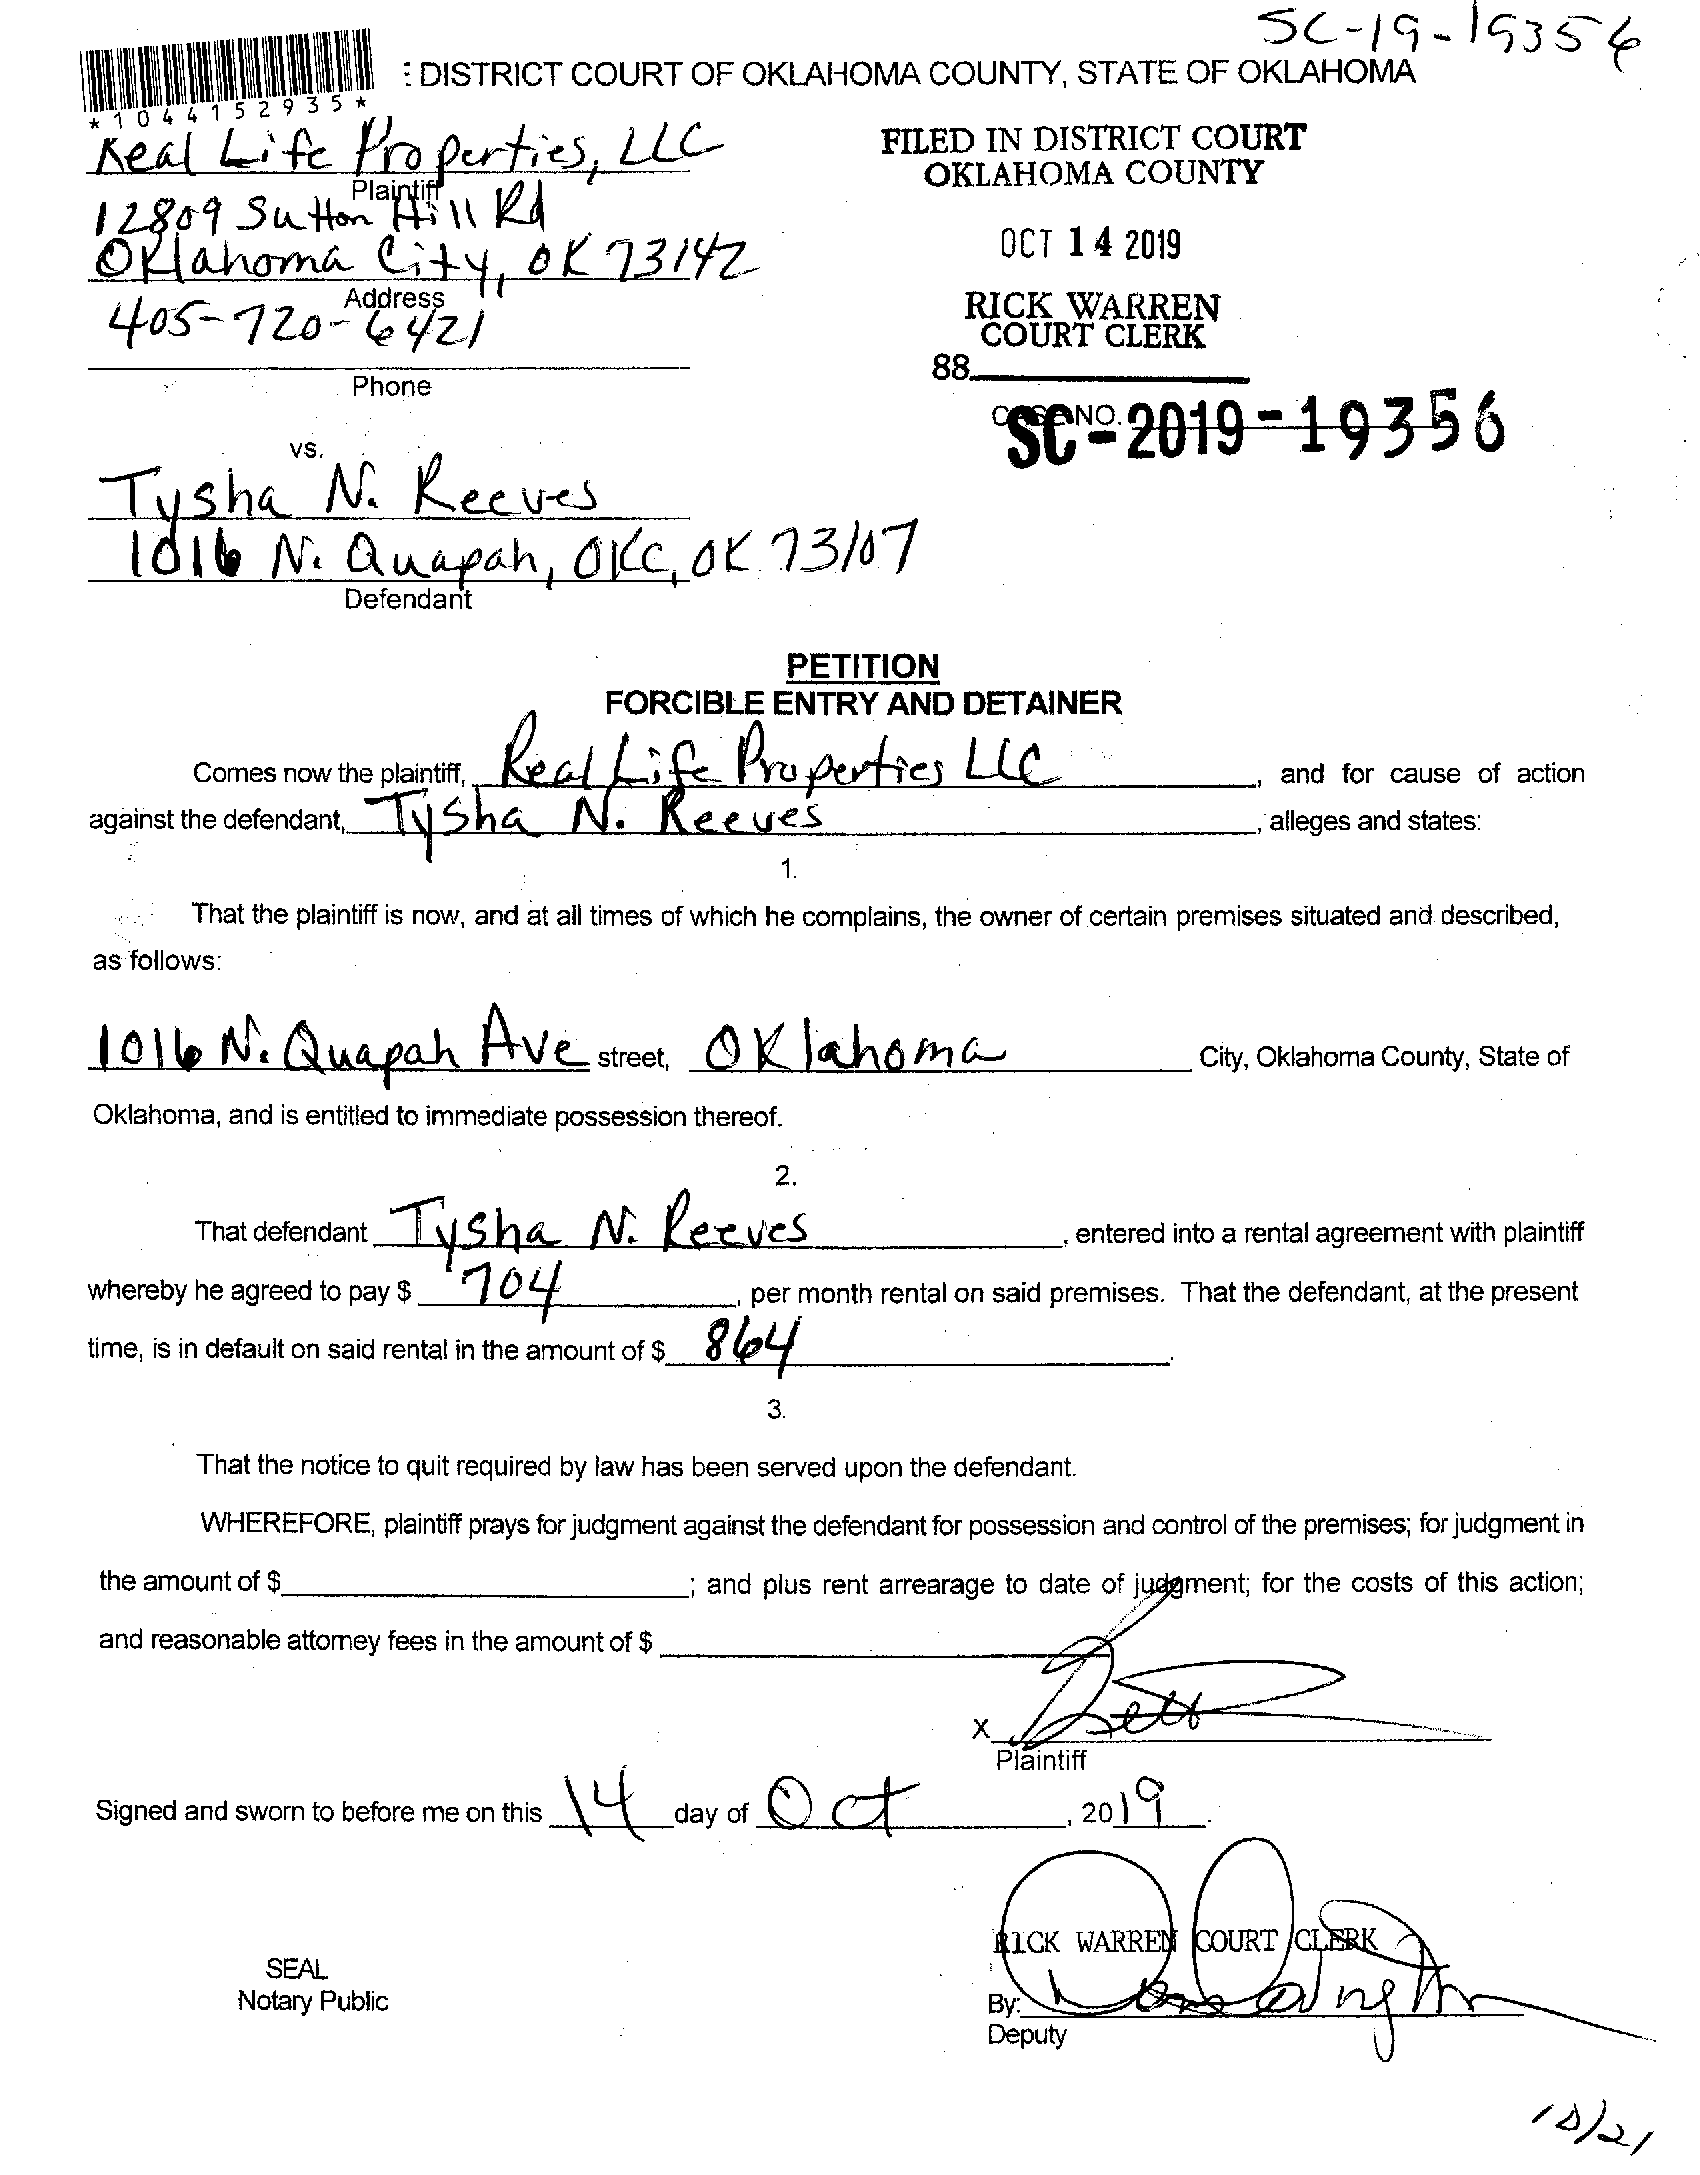 SC-19-19356
: DISTRICT COURT OF OKLAHOMA COUNTY, STATE OF OKLAHOMA
*1044152935*
Real Life Properties, LLC
Plaintiff
12809 Sutton Hill Rd
Oklahoma City, OK 73142
Address
405-720-6421
Phone
FILED IN DISTRICT COURT
OKLAHOMA COUNTY
OCT 14 2019
RICK WARREN
COURT CLERK
88
CASE NO.
SC-2019-19356
vs.
Tysha N. Reeves
1016 N. Quapah, OKC, OK 73107
Defendant
PETITION
FORCIBLE ENTRY AND DETAINER
Comes now the plaintiff, Real Life Properties LLC, and for cause of action
against the defendant, Tysha N. Reeves, alleges and states:
1.
That the plaintiff is now, and at all times of which he complains, the owner of certain premises situated and described,
as follows:
1016 N. Quapah Ave street, Oklahoma City, Oklahoma County, State of
Oklahoma, and is entitled to immediate possession thereof.
2.
That defendant Tysha N. Reeves, entered into a rental agreement with plaintiff
whereby he agreed to pay $ 704, per month rental on said premises. That the defendant, at the present
time, is in default on said rental in the amount of $ 864.
3.
That the notice to quit required by law has been served upon the defendant.
WHEREFORE, plaintiff prays for judgment against the defendant for possession and control of the premises; for judgment in
the amount of $ ; and plus rent arrearage to date of judgment; for the costs of this action;
and reasonable attorney fees in the amount of $
X
Plaintiff
Signed and sworn to before me on this 14 day of Oct, 2019.
RICK WARREN COURT CLERK
SEAL
Notary Public
By:
Deputy
10/21